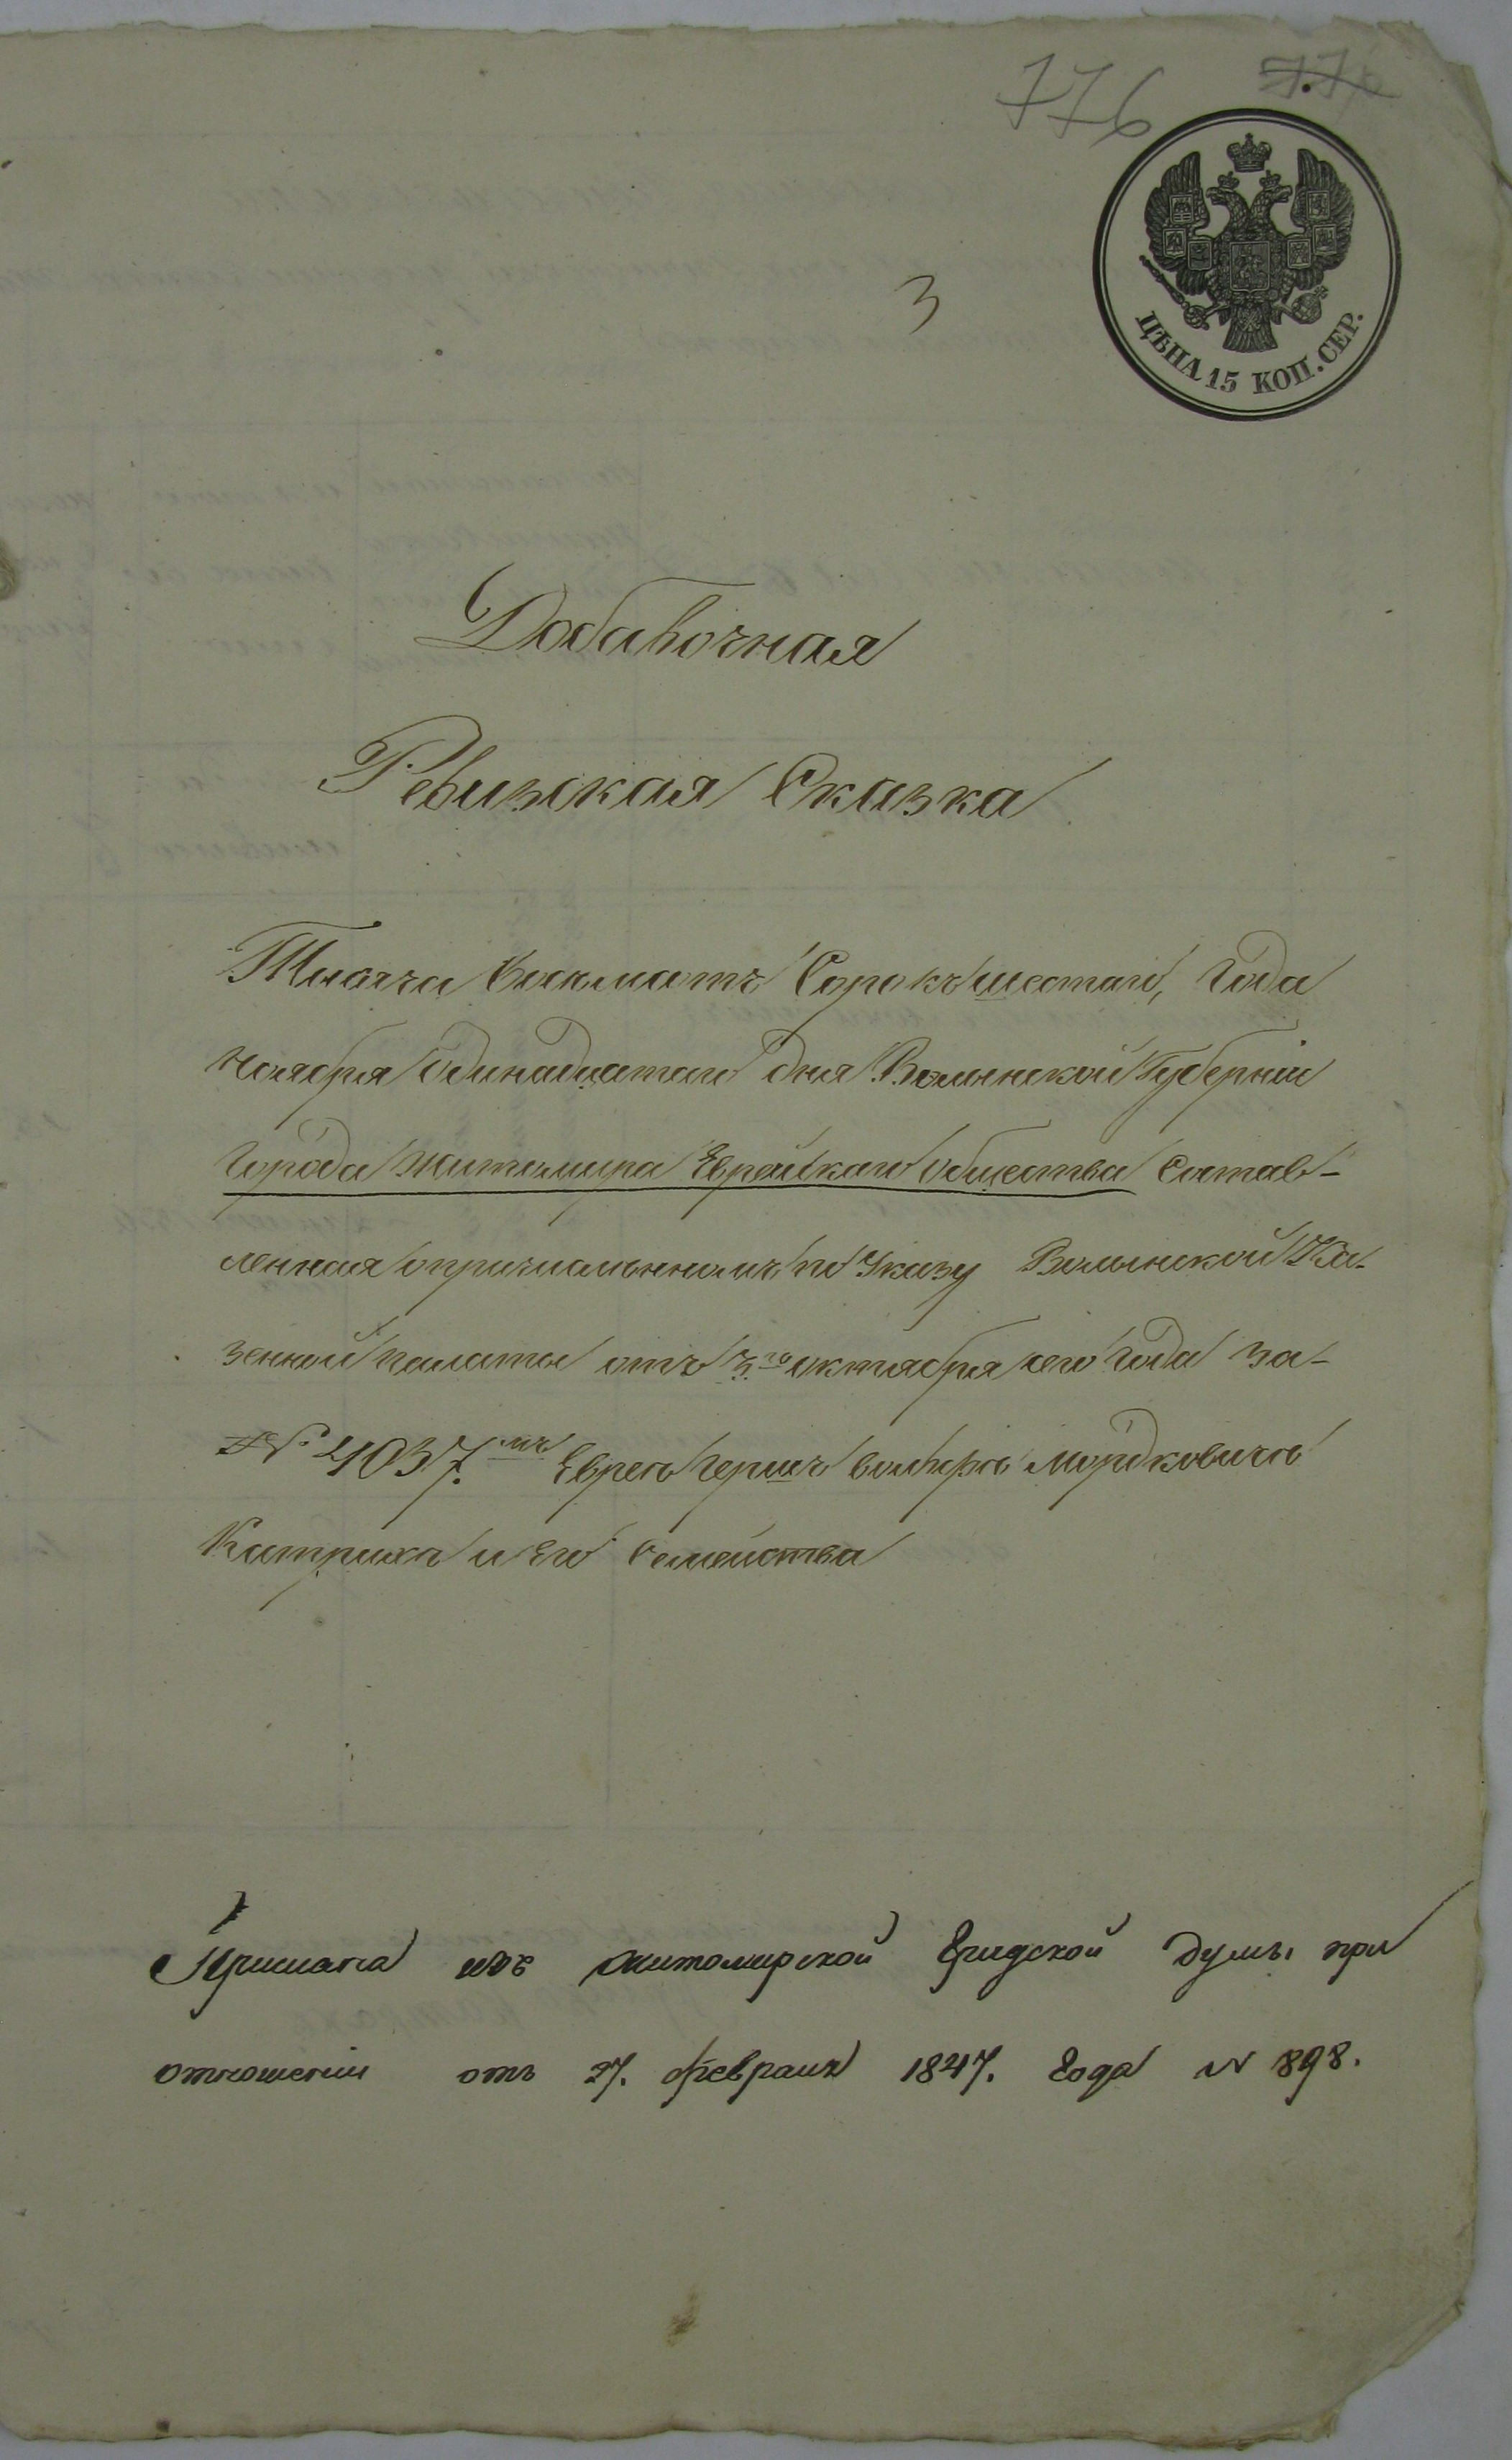 776
3
ЦѢНА 15 КОП. СЕР.
Добавочная
Ревизская Сказка
Тысяча восемьсотъ Сорокъ шестаго, Года
Ноября одинадцатаго дня Волынской Губерніи
Города Житомира Еврейскаго общества Состав-
ленная о причисленномъ по Указу Волынской Ка-
зенной палаты отъ 3го октября сего Года за-
№ 4037.мъ Еврея Герша Мордковича
и Его Семейства
Прислана изъ Житомирской Градской думы при
отношеніи отъ 27. февраля 1847. Года № 898.